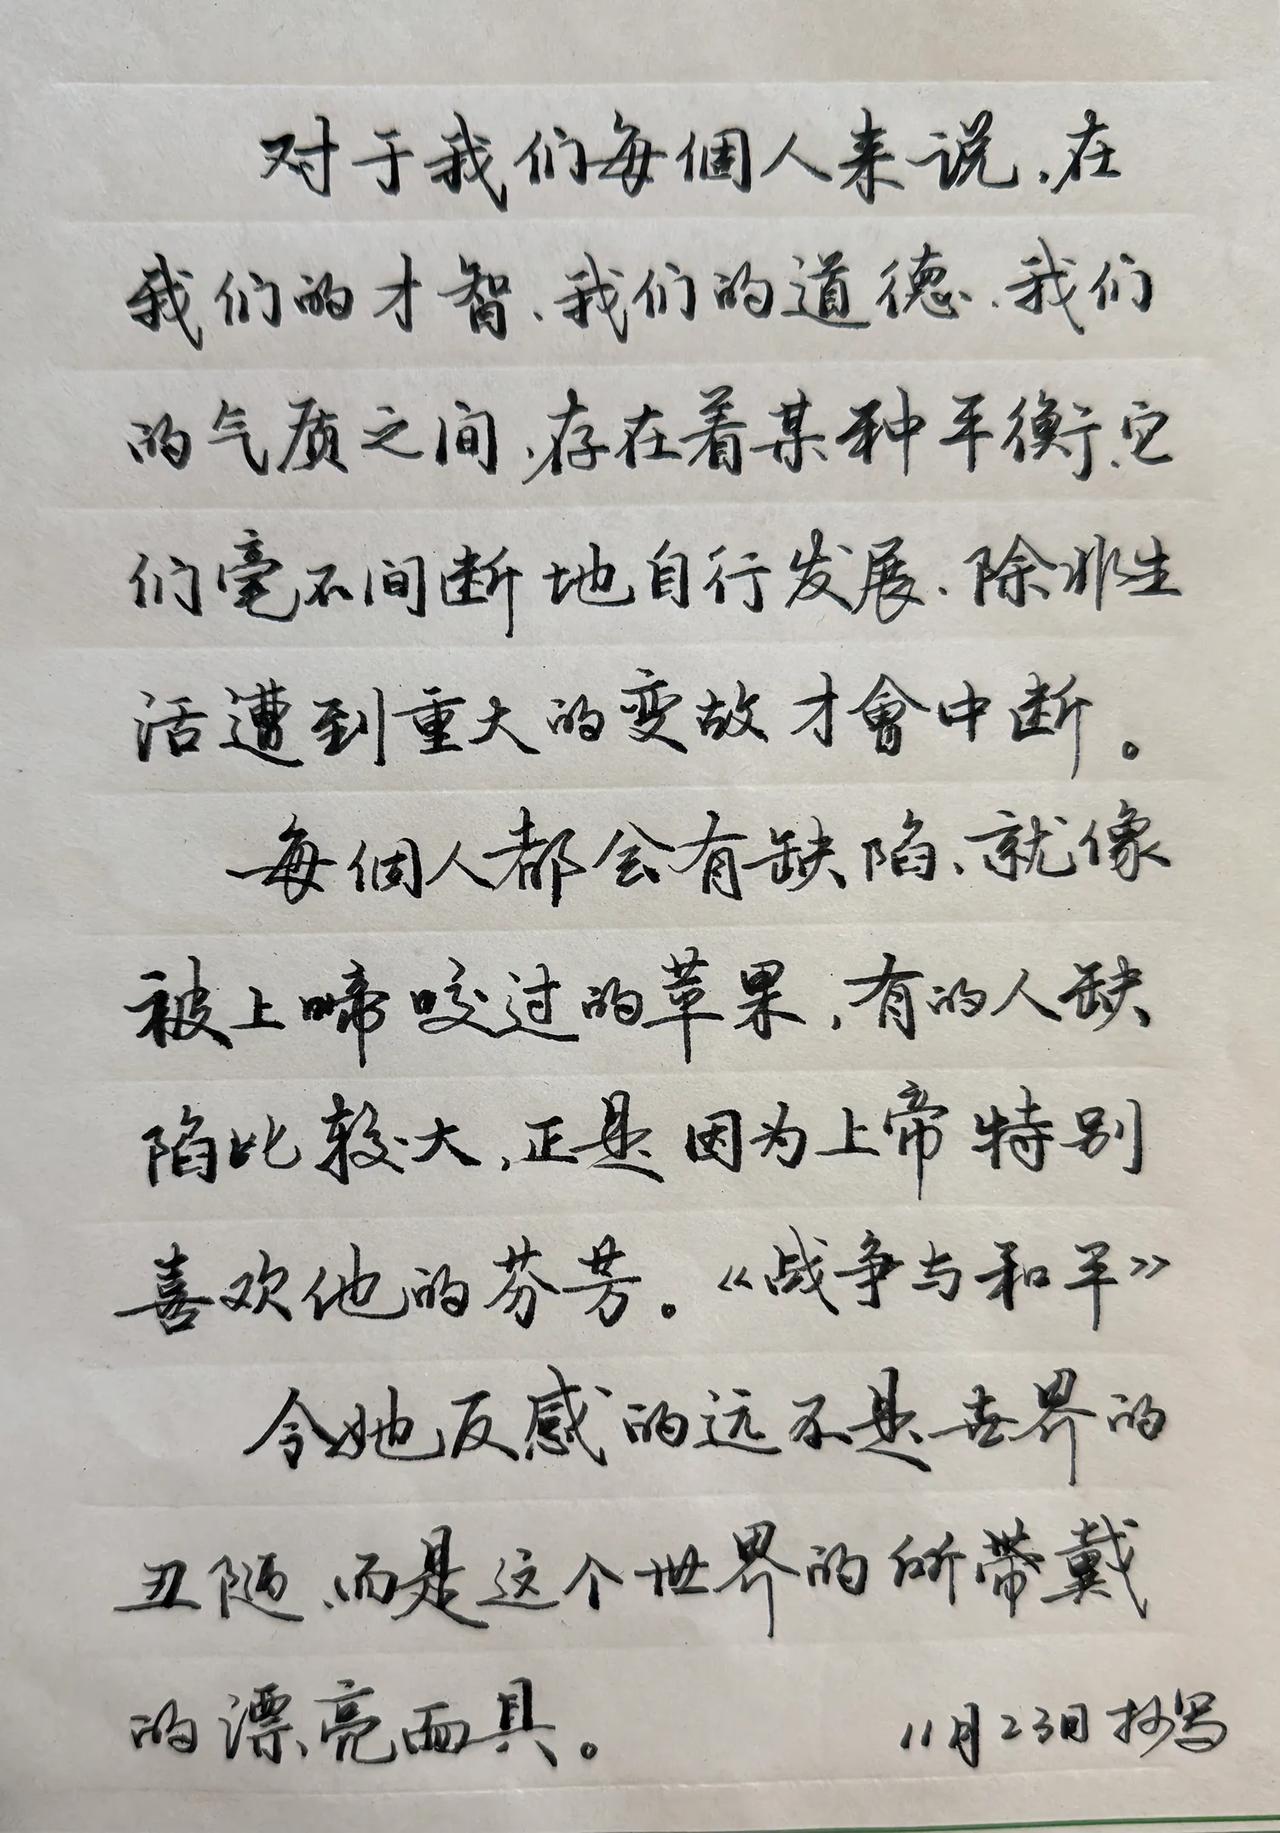 对于我们每個人来说,在
我们的才智、我们的道德、我们
的气质之间,存在着某种平衡,它
们毫不间断地自行发展、除非生
活遭到重大的变故才會中断。
每個人都会有缺陷、就像
被上啼咬过的苹果,有的人缺
陷比较大,正是因为上帝特别
喜欢他的芬芳。《战争与和平》
令她反感的远不是世界的
丑陋、而是这个世界的所带戴
的漂亮面具。 11月23日抄写